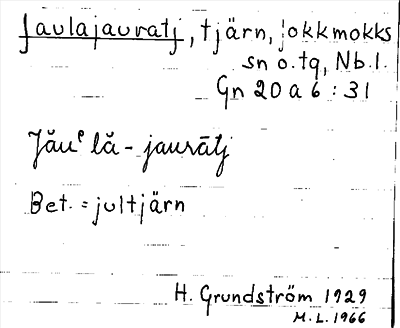 Jaulajauratj, tjärn, Jokkmokks
sn o. tg, Nb. l.
Gn 20 a 6 : 31
Jău͑ lă - jaurātj
Bet. = jultjärn
H. Grundström 1929
M. L. 1966